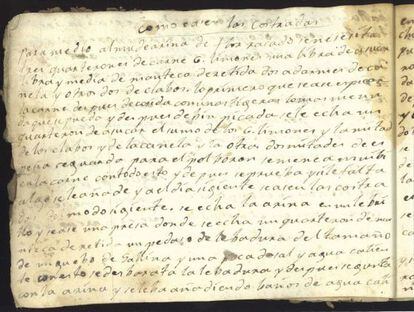 Como se acen las Costradas
Para medio almud de arina de flor rasado se necesitan
tres quarterones de carne 6 limones una libra de azucar
libra y media de manteca derretida dos adarmes de ca
nela y otros dos de clabos lo primero que se ace es picar
la carne despues de cocida con unas tigeras lo mas menu
da que puedo y despues de bien picada se le echa un
quarteron de azucar el sumo de los 6 limones y la mitad
de los clabos y de la canela y la otra dos mitades de es
pecia se guarda para el polboron se menea mui bi
en la carne con todo esto y despues se prueba y si le falta
algo se le añade y al dia siguiente se acen las costra
das modo siguiente se echa la arina en un lebri
llo y se ace una presa donde se echa un quarteron de man
teca derretida un pedazo de lebadura del tamaño
de un guebo de gallina y una poca de sal y agua calien
te con esto se desbarata la lebadura y despues se junta
con la arina y se le ba añadiendo baños de agua cali